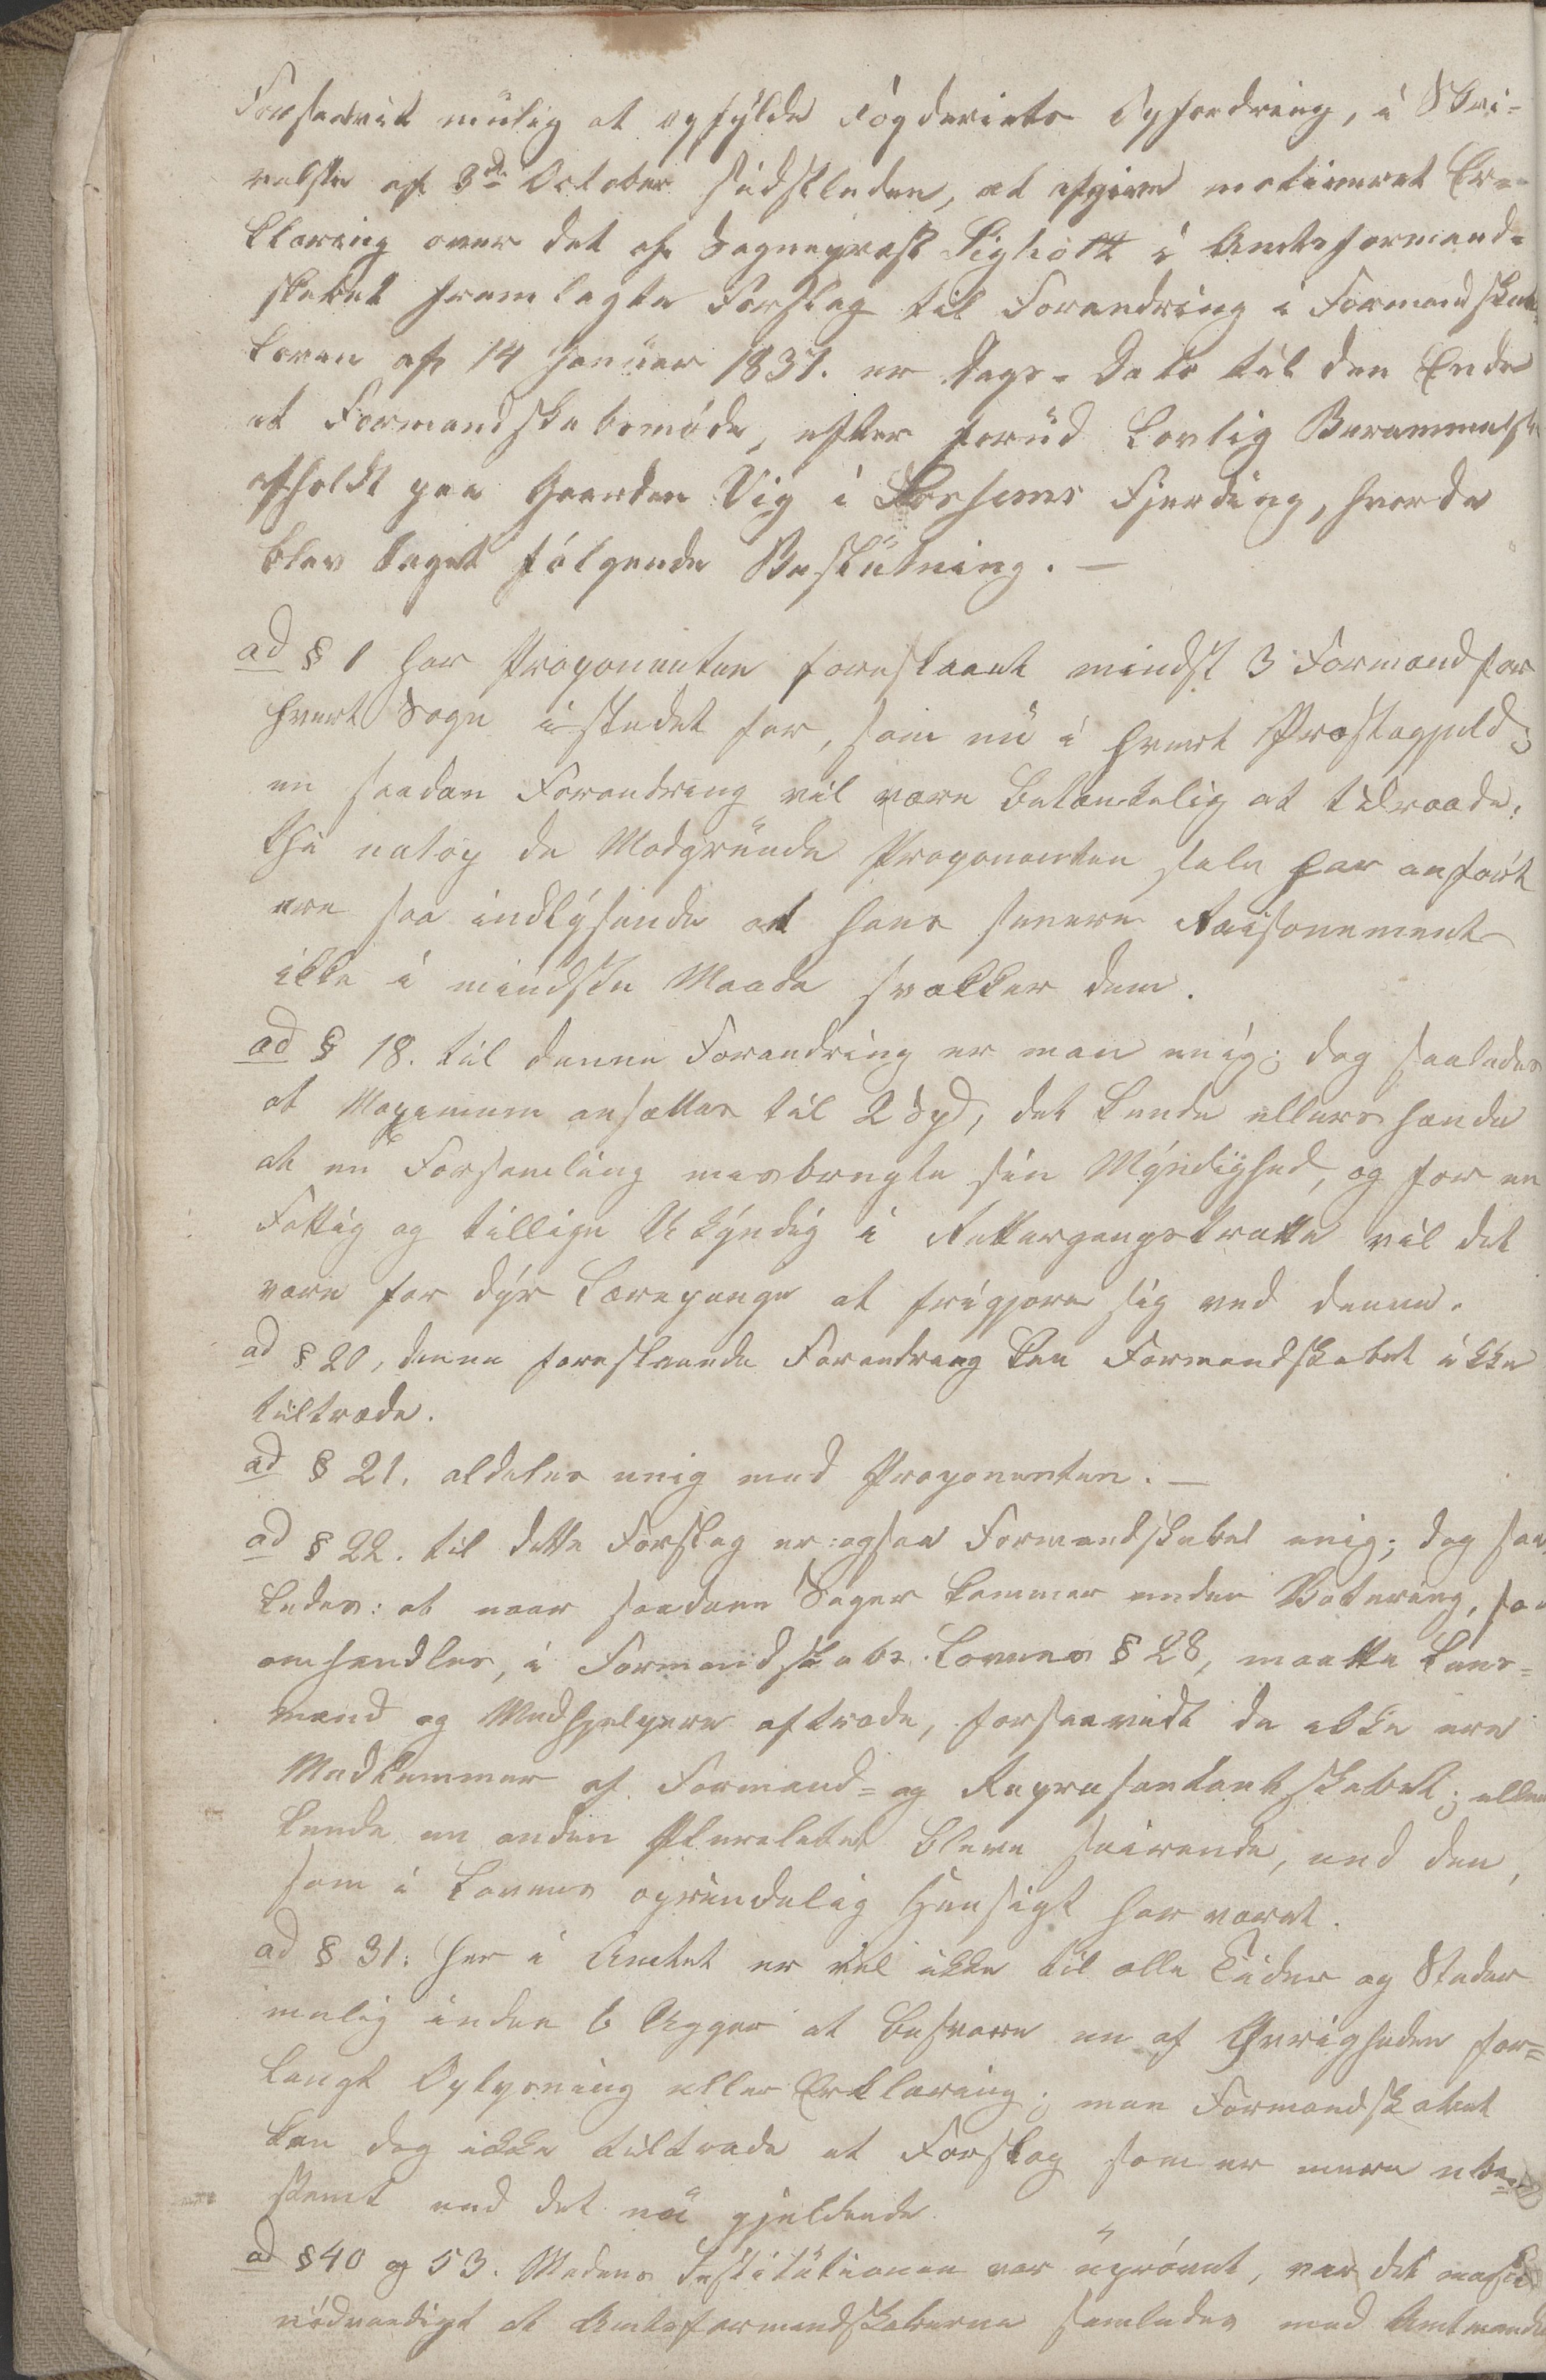 Forsaavit mulig at opfylde Fogderiets Opfordring, i Skri-
velse af 3die October sidstleden, at afgive motiveret Er-
klæring over det af Sogneprest Sigholt i Amtsformand-
skabet fremlagte Forslag til Forandring i Formandskabs
Loven af 14 Januar 1837. er Dags-Dato til den Ende
et Formandskabsmøde, efter forud lovlig Berammelse
afholdt paa Gaarden Vig i Fjerding, hvor da
blev taget følgende Beslutning. —
ad § 1 har Proponenten foreslaaet mindst 3 Formænd for
hvert Sogn istedet for, som nu i hvert Præstegjeld;
en saadan Forandring vil være betænkelig at tilraade;
thi netop de Modgrunde Proponenten selv har anført
ere saa indlysende at hans senere Raisonement
ikke i mindste Maade svækker dem.
ad § 18. til denne Forandring er man enig; dog saaledes
at Maximum ansættes til 2 Spd, det kunde ellers hænde
at en Forsamling misbrugte sin Myndighed, og for en
Fattig og tillige Ukyndig i Rettergangstrætte vil det
være for dyr Lærepenge at frigjøre sig ved denne.
ad § 20, denne foreslaaede Forandring kan Formandskabet ikke
tiltræde.
ad § 21. aldeles enig med Proponenten. —
ad § 22. til dette Forslag er ogsaa Formandskabet enig; dog saa
ledes: at naar saadane Sager kommer under Votering, som
omhandles, i Formandskabs-Lovens § 28, maatte Lens-
mænd og Medhjelpere aftræde, forsaavidt de ikke ere
Medlemmer af Formand- og Repræsentantskabet; ellers
kunde en anden Pluralitet bleve seirende, end den,
som i Lovens oprindelig Hensigt har været.
ad § 31: her i Amtet er vel ikke til alle Tider og Steder
mulig inden 6 Uger at besvare en af Øvrigheden for-
langt Oplysning eller Erklæring; men Formandskabet
kan dog ikke tiltræde et Forslag som er mere ube-
stemt end det nu gjeldende
ad § 40 og 53. Medens Institutionen var uprøvet, var det maaske
nødvendigt at Amtsformandskaberne samledes med Amtmanden